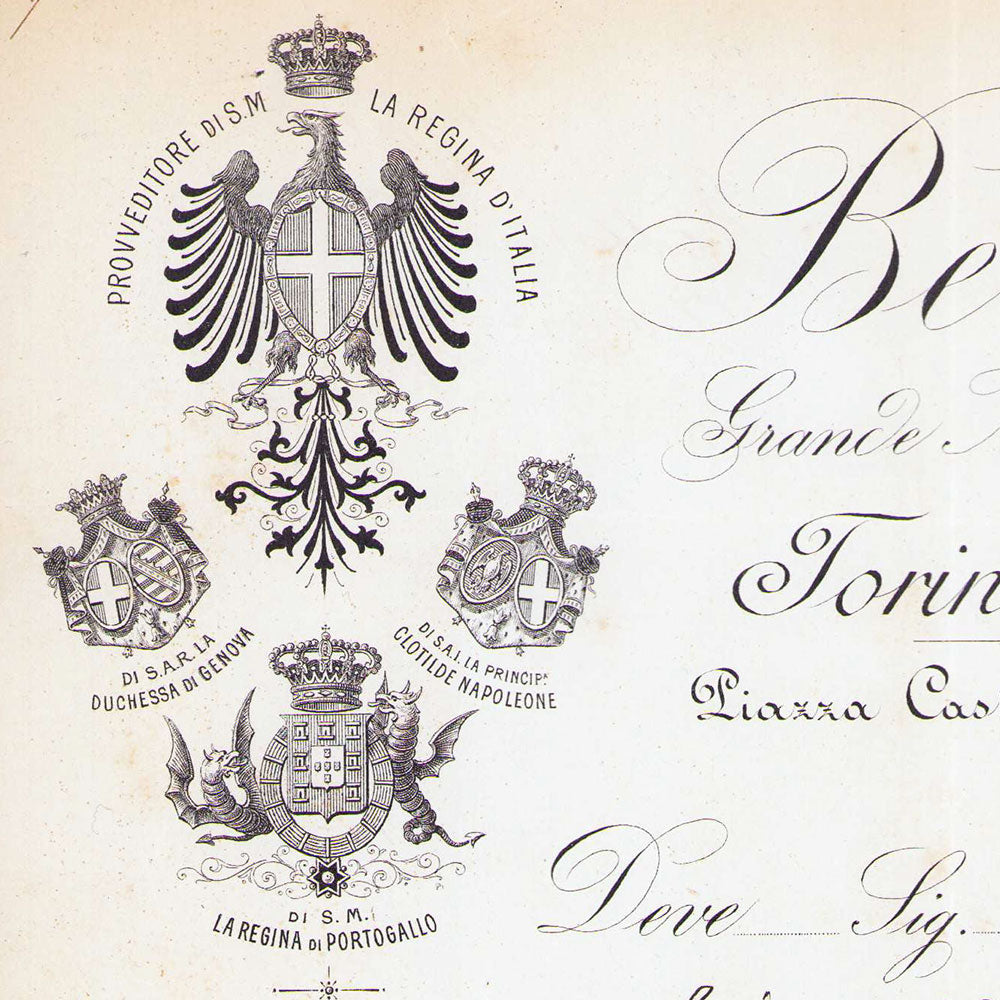 PROVVEDITORE DI S.M LA REGINA D'ITALIA
DI S.A.R. LA
DUCHESSA DI GENOVA
DI S.A.I. LA PRINCIP.
CLOTILDE NAPOLEONE
DI S. M.
LA REGINA DI PORTOGALLO
Be
Grande
Torin
Piazza Cas
Deve Sig.